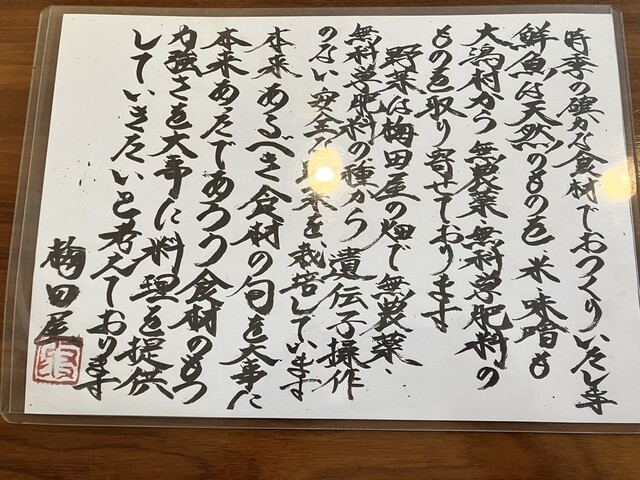 時季の確かな食材でおつくりいたし〼
鮮魚は天然のものを 米・味噌も
大潟村から無農薬 無科学肥料の
ものを取り寄せております
野菜は梅田屋の畑で無農薬、
無科学肥料の種から遺伝子操作
のない安全な野菜を栽培しています
本来あるべき食材の旬を大事に
本来あたであろう食材のもつ
力強さを大事に料理を提供
していきたいと考えております
梅田屋